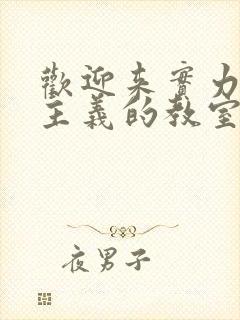 歡迎来實力
主義的教室
夜男子